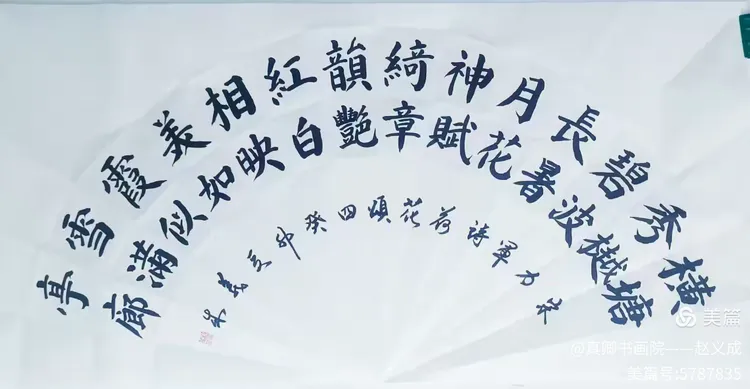 橫塘
秀樾
碧波
長暑
月花
神賦
綺章
韻艷
紅白
相映
美如
霞似
雪滿
亭廊
宋力軍詩荷花頌四癸卯夏義成
美篇
@真卿书画院——赵义成
美篇号:5787835